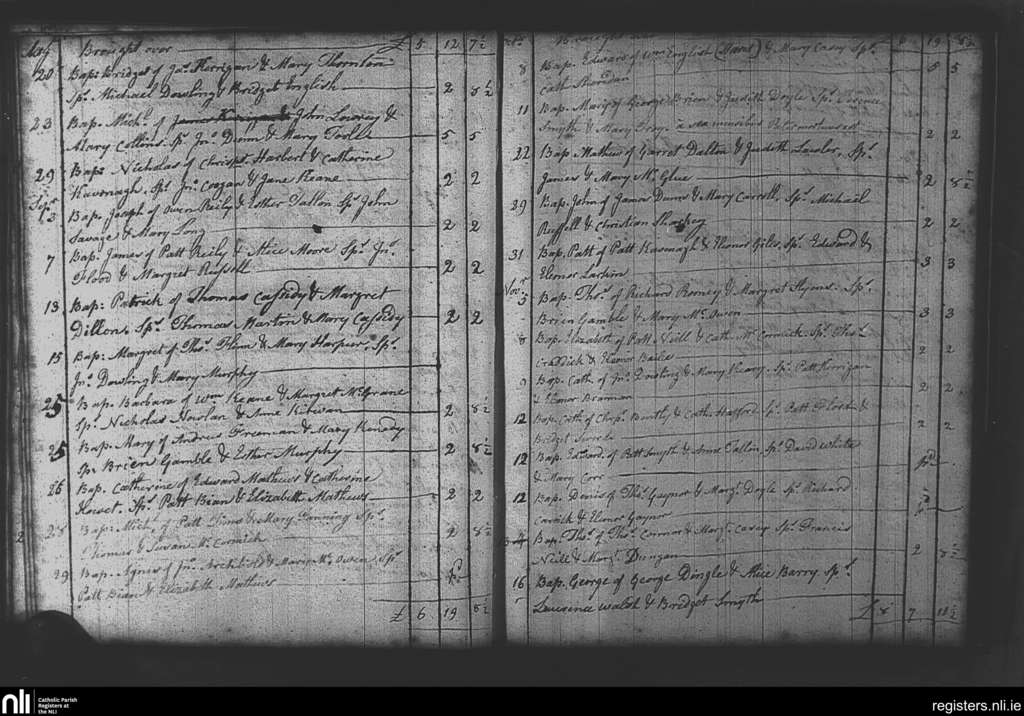 Augt Brought over £ 5 12 7½
20 Bap: Bridget of Jas. Kerrigan & Mary Thornton
Sps. Michael Dowling & Bridget English 2 8½
23 Bap. Michl. of John Lowrey &
Mary Collins. Sps. Jno. Dunn & Mary Toole 5 5
29 Bap: Nicholas of Christr. Harbert & Catherine
Kavanagh. Sps. Jno. Coogan & Jane Keane 2 2
Sepr. 3 Bap. Joseph of Owen Reily & Esther Tallon Sps. John
Savage & Mary Long 2 2
7 Bap: James of Patt Reily & Alice Moore Sps. Jno.
Flood & Margret Russell 2 2
13 Bap: Patrick of Thomas Cassidy & Margret
Dillon. Sps. Thomas Warton & Mary Cassidy 2 2
15 Bap: Margret of Thos. Flinn & Mary Harper. Sps.
Jno. Dowling & Mary Murphy
25 Bap. Barbara of Wm Keane & Margret McGrane
Sp. Nicholas Nowlan & Anne Kirwan 2 8½
25 Bap. Mary of Andrew Freeman & Mary Kenedy
Sp. Brien Gamble & Esther Murphy 2 8½
26 Bap. Catherine of Edward Mathews & Catherine
Sps. Patt Bean & Elizabeth Mathews 2 2
28 Bap: Michl. of Patt Tims & Mary Fanning Sps.
Thomas & Susan McCormick 2 8½
29 Bap. Agnes of Jno. Archbold & Mary McOwen, Sps
Patt Bean & Elizabeth Mathews
£ 6 19 8½
Brought over 6 19 8½
8 Bap. Edward of Wm English & Mary Casey Sps.
Cath Sheridan 5 5
11 Bap. Mary of George Brien & Judith Doyle Sps. Terence
Smyth & Mary Bryn 2 2
22 Bap. Mathew of Garret Dalton & Judeth Lawler, Sps.
James & Mary McGlue 2 8½
29 Bap. John of James Dunn & Mary Carroll, Sps. Michael
Russell & Christian Sharkey 2 2
31 Bap. Patt of Patt Kavanagh & Elenor Giles, Sps. Edward &
Elenor Larkin 3 3
Novr. 5 Bap. Thos. of Richard Rooney & Margret Flynn. Sps.
Brien Gamble & Mary McOwen 3 3
8 Bap. Elizabeth of Patt Neill & Cath. McCormick Sps. Thos.
Craddick & Elenor Baile 2 2
9 Bap. Cath. of Jno. Dowling & Mary Keary. Sps. Patt Kerrigan
& Elenor Brannan 2 2
12 Bap. Cath of Chrisr. Bently & Cath. Harford Sps. Patt Flood &
Bridget 2 2
12 Bap. Edward. of Patt Smyth & Anne Tallon Sp. David White
& Mary Corr
12 Bap: Denis of Thos. Gaynor & Margt. Doyle Sps. Richard
Cormick & Elenor Gaynor
Bap. Thos. of Thos. Connor & Margt. Carey Sps. Francis
Neill & Margt. Dungan 2 8½
16 Bap. George of George Dingle & Alice Barry Sps.
Lawrence Walsh & Bridget Smyth
£ 8 7 11½
nli Catholic Parish
Registers at
the NLI
registers.nli.ie